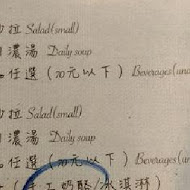 拉 Salad(small)
濃湯 Daily soup
任選(70元以下) Beverages(und
拉 Salad(small)
濃湯 Daily soup
任選(70元以下) Beverages(u
手工奶酪/冰淇淋)